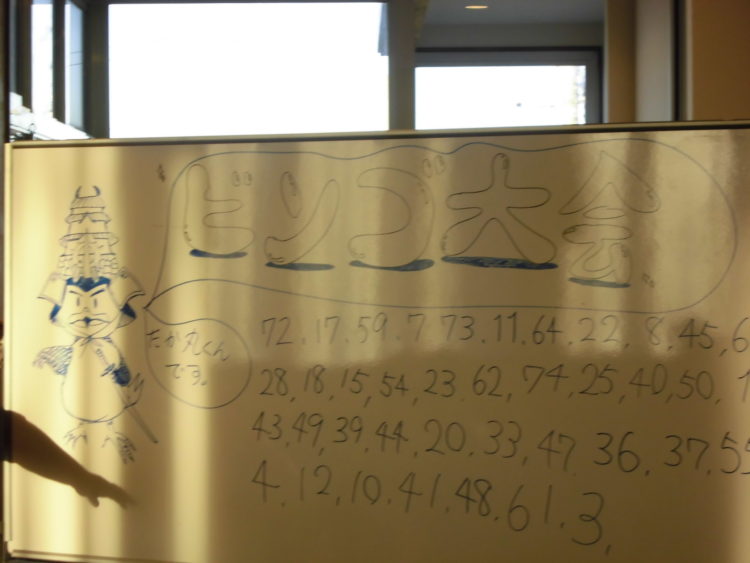 ビンゴ大会
たか丸くん
です。
72.17.59.7 73.11.64.22.8.45,6
28,18,15,54,23,62,74,25,40,50,1
43,49,39,44,20,33,47,36,37,55
4.12,10.41,48,61.3,